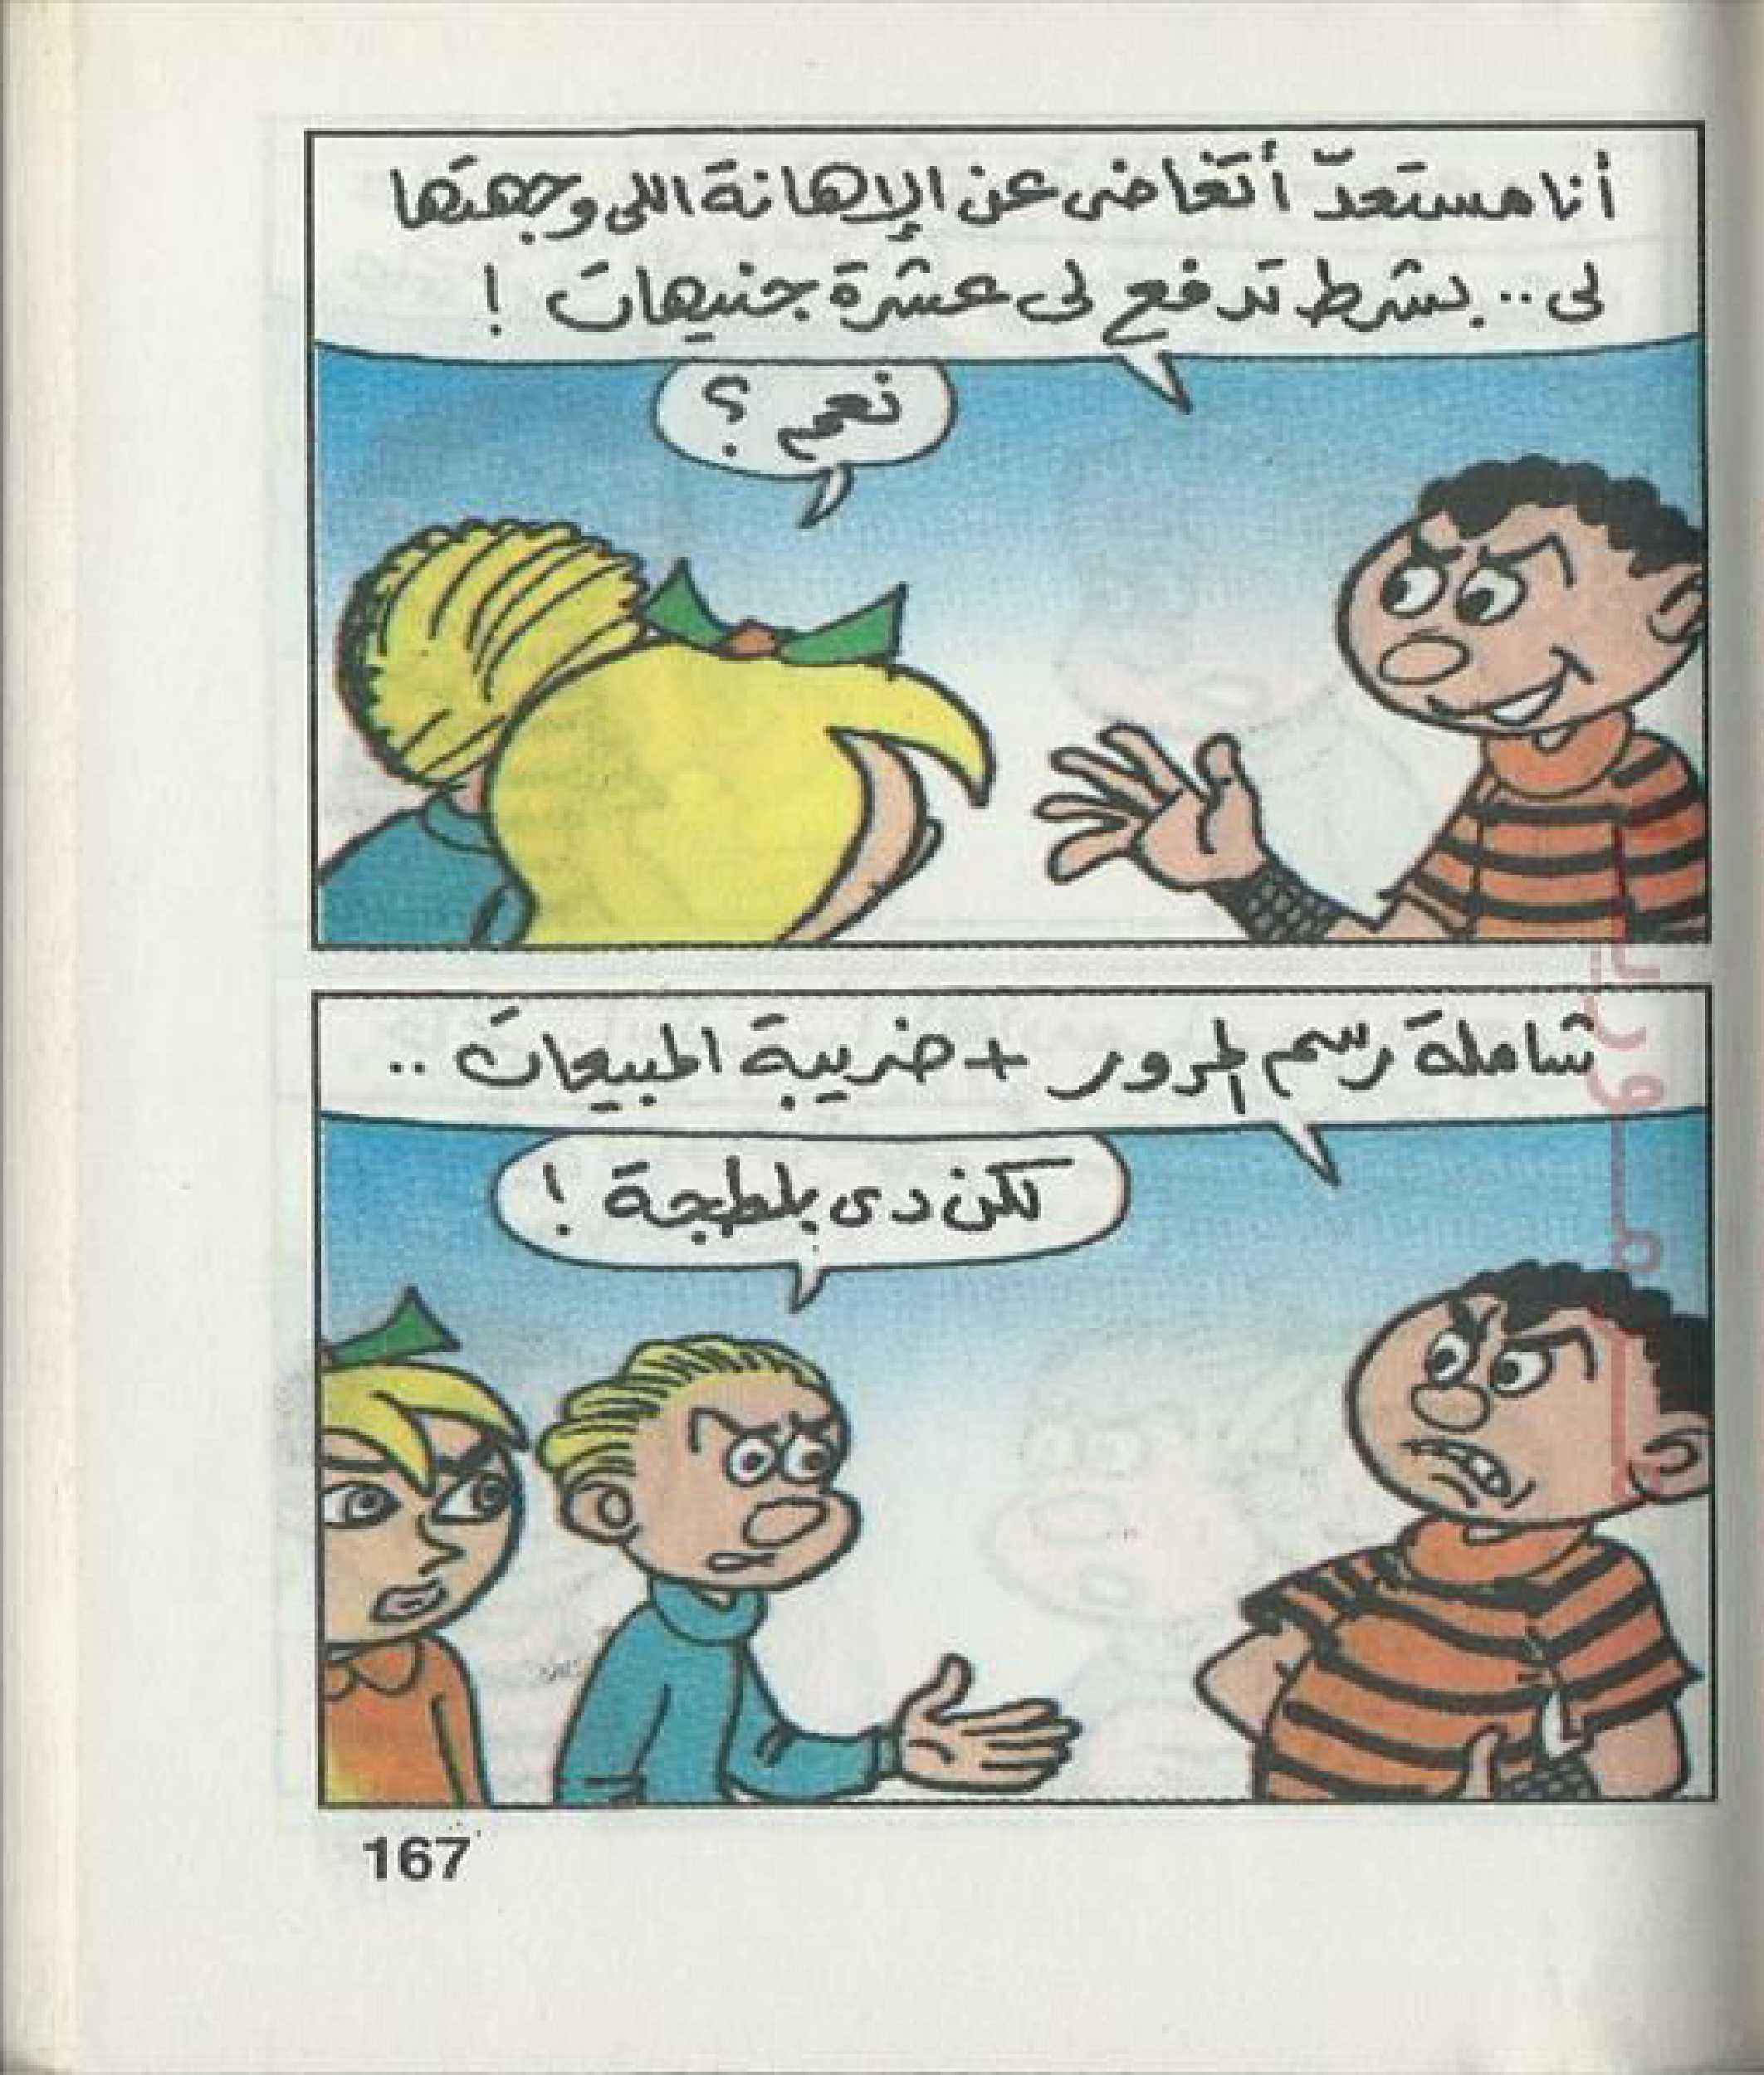 أنا مستعدّ أتغاضى عن الإهانة اللى وجهتها
لى.. بشرط تدفع لى عشرة جنيهات !
نعم ؟
شاملة رسم المرور + ضريبة المبيعات ..
لكن دى بلطجة !
167